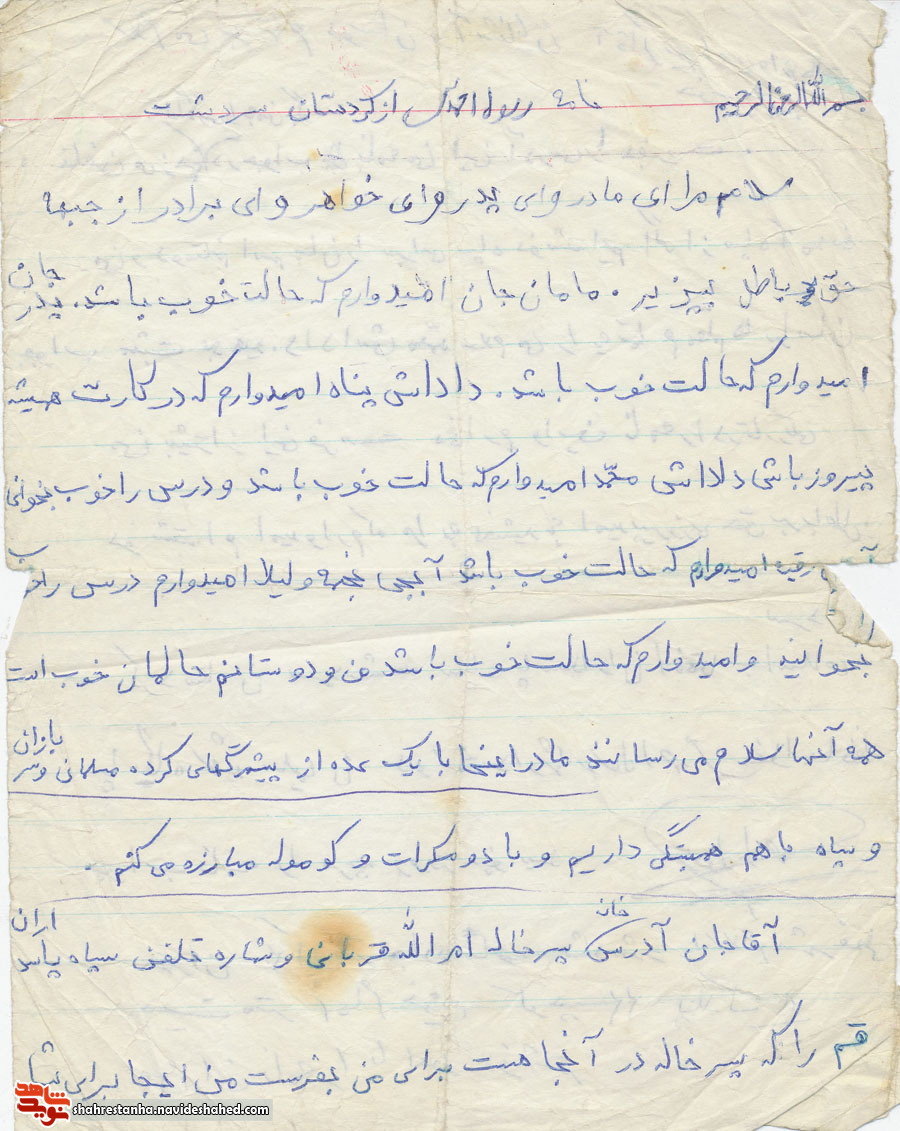 بسم الله الرحمن الرحیم
از کردستان سردشت
سلام مرا ای مادر وای پدر وای خواهر و ای برادر از جبهه
حق باطل بپزیر . مامان جان امیدوارم که حالت خوب باشد. پدر جان
امیدوارم که حالت خوب باشد. داداش پناه امیدوارم که در کارت همیشه
پیروز باشی داداشی محمد امیدوارم که حالت خوب باشد و درس را خوب بخوانی
رقیه امیدوارم که حالت خوب باشد آبجی و لیلا امیدوارم درس را خوب
بخوانید و امیدوارم که حالت خوب باشد من و دوستانم حالمان خوب است
همه آنها سلام می رسانند ما در اینجا با یک عده از پیشمرگهای کرده مسلمان
و سپاه باهم همبستگی داریم و با دومکرات و کومله مبارزه می کنم .
آقاجان آدرس خانه پسر خاله امرالله قربانی و شماره تلفنی سپاه پاسداران
قم را که پسر خاله در آنجا هست برای من بفرست من اینجا برای شما
شاهد
نوید
shahrestanha.navideshahed.com